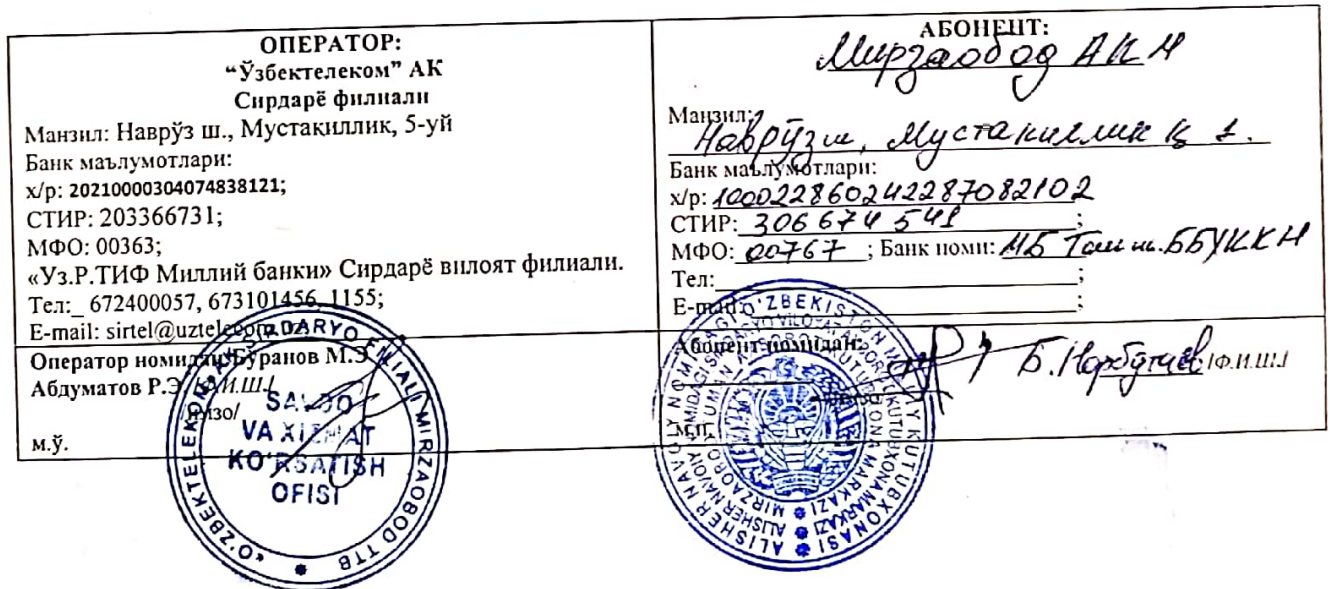 ОПЕРАТОР:
“Ўзбектелеком” АК
Сирдарё филиали
Манзил: Наврўз ш., Мустақиллик, 5-уй
Банк маълумотлари:
х/р: 20210000304074838121;
СТИР: 203366731;
МФО: 00363;
«Уз.Р.ТИФ Миллий банки» Сирдарё вилоят филиали.
Тел:_ 672400057, 673101456, 1155;
E-mail: sirtel@uztelecom.uz
Оператор номидан: Буранов М.Э
Абдуматов Р.Э /Ф.И.Ш./
/имзо/
м.ў.
«O‘ZBEKTELEKOM» AK SIRDARYO FILIALI MIRZAOBOD TTB
SAVDO
VA XIZMAT
KO‘RSATISH
OFISI
АБОНЕНТ:
Мирзаобод АКМ
Манзил:
Наврўз ш, Мустакиллик к 1.
Банк маълумотлари:
х/р: 100022860242287082102
СТИР: 306674541;
МФО: 00767; Банк номи: МБ Тош ш. ББУККМ
Тел:;
E-mail:;
Абонент номидан:
Б. /Ф.И.Ш./
м.п.
ALISHER NAVOIY NOMIDAGI O‘ZBEKISTON MILLIY KUTUBXONASI
AXBOROT KUTUBXONA MARKAZI